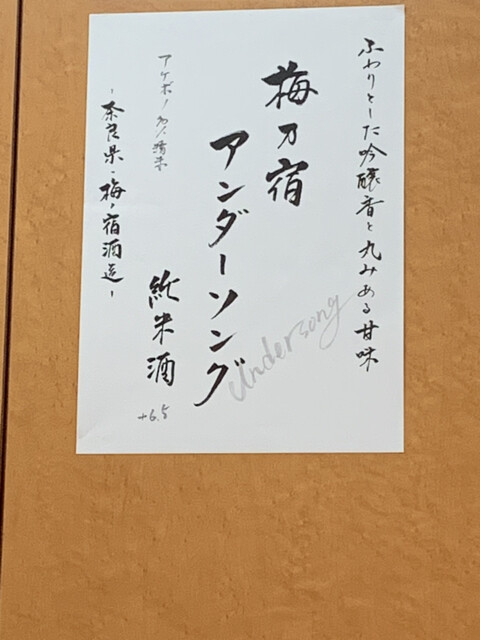 ふわりとした吟醸香と丸みある甘味
梅乃宿
アンダーソング
Undersong
純米酒
+6.5
アケボノ70%精米
-奈良県・梅乃宿酒造-